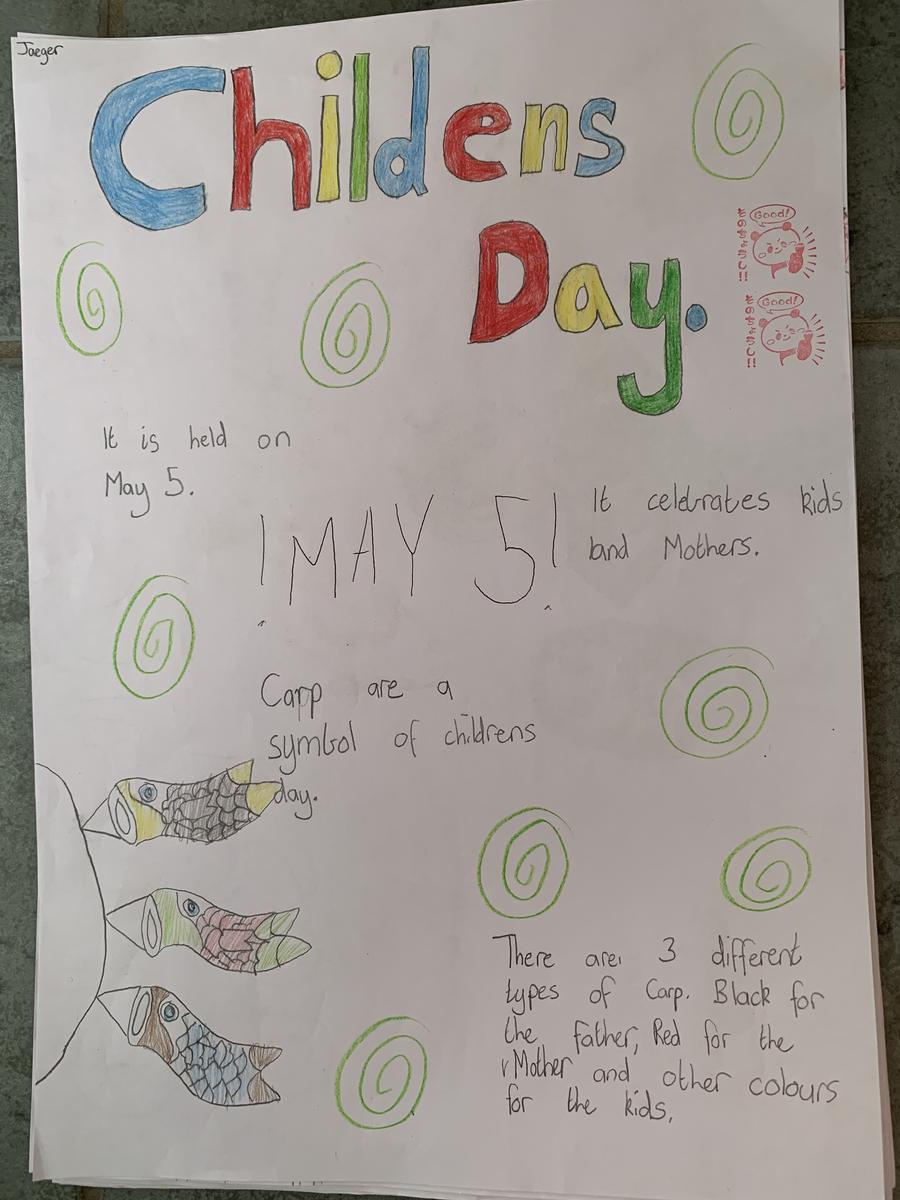 Jaeger
Childens
Day.
Good!
Good!
It is held on
May 5.
!MAY 5!
It celebrates kids
and Mothers.
Carp are a
symbol of childrens
day.
There are 3 different
types of Carp. Black for
the father, Red for the
Mother and other colours
for the kids.